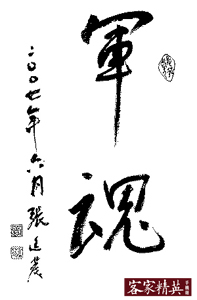 軍魂
二〇〇七年六月張廷發
客家精英